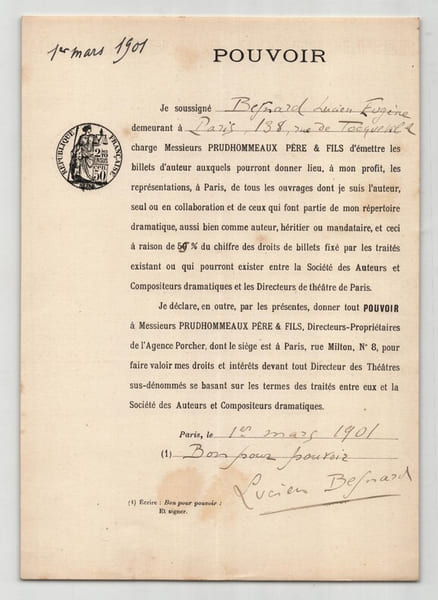 1er mars 1901
POUVOIR
Je soussigné Besnard Lucien Eugène
demeurant à Paris, 138, rue de Tocqueville
charge Messieurs PRUDHOMMEAUX PÈRE & FILS d'émettre les
billets d'auteur auxquels pourront donner lieu, à mon profit, les
représentations, à Paris, de tous les ouvrages dont je suis l'auteur,
seul ou en collaboration et de ceux qui font partie de mon répertoire
dramatique, aussi bien comme auteur, héritier ou mandataire, et ceci
à raison de % du chiffre des droits de billets fixé par les traités
existant ou qui pourront exister entre la Société des Auteurs et
Compositeurs dramatiques et les Directeurs de théâtre de Paris.
Je déclare, en outre, par les présentes, donner tout POUVOIR
à Messieurs PRUDHOMMEAUX PÈRE & FILS, Directeurs-Propriétaires
de l'Agence Porcher, dont le siège est à Paris, rue Milton, N° 8, pour
faire valoir mes droits et intérêts devant tout Directeur des Théâtres
sus-dénommés se basant sur les termes des traités entre eux et la
Société des Auteurs et Compositeurs dramatiques.
Paris, le 1er mars 1901
(1) Bon pour pouvoir
Lucien Besnard
(1) Écrire : Bon pour pouvoir :
Et signer.
RÉPUBLIQUE FRANÇAISE
50